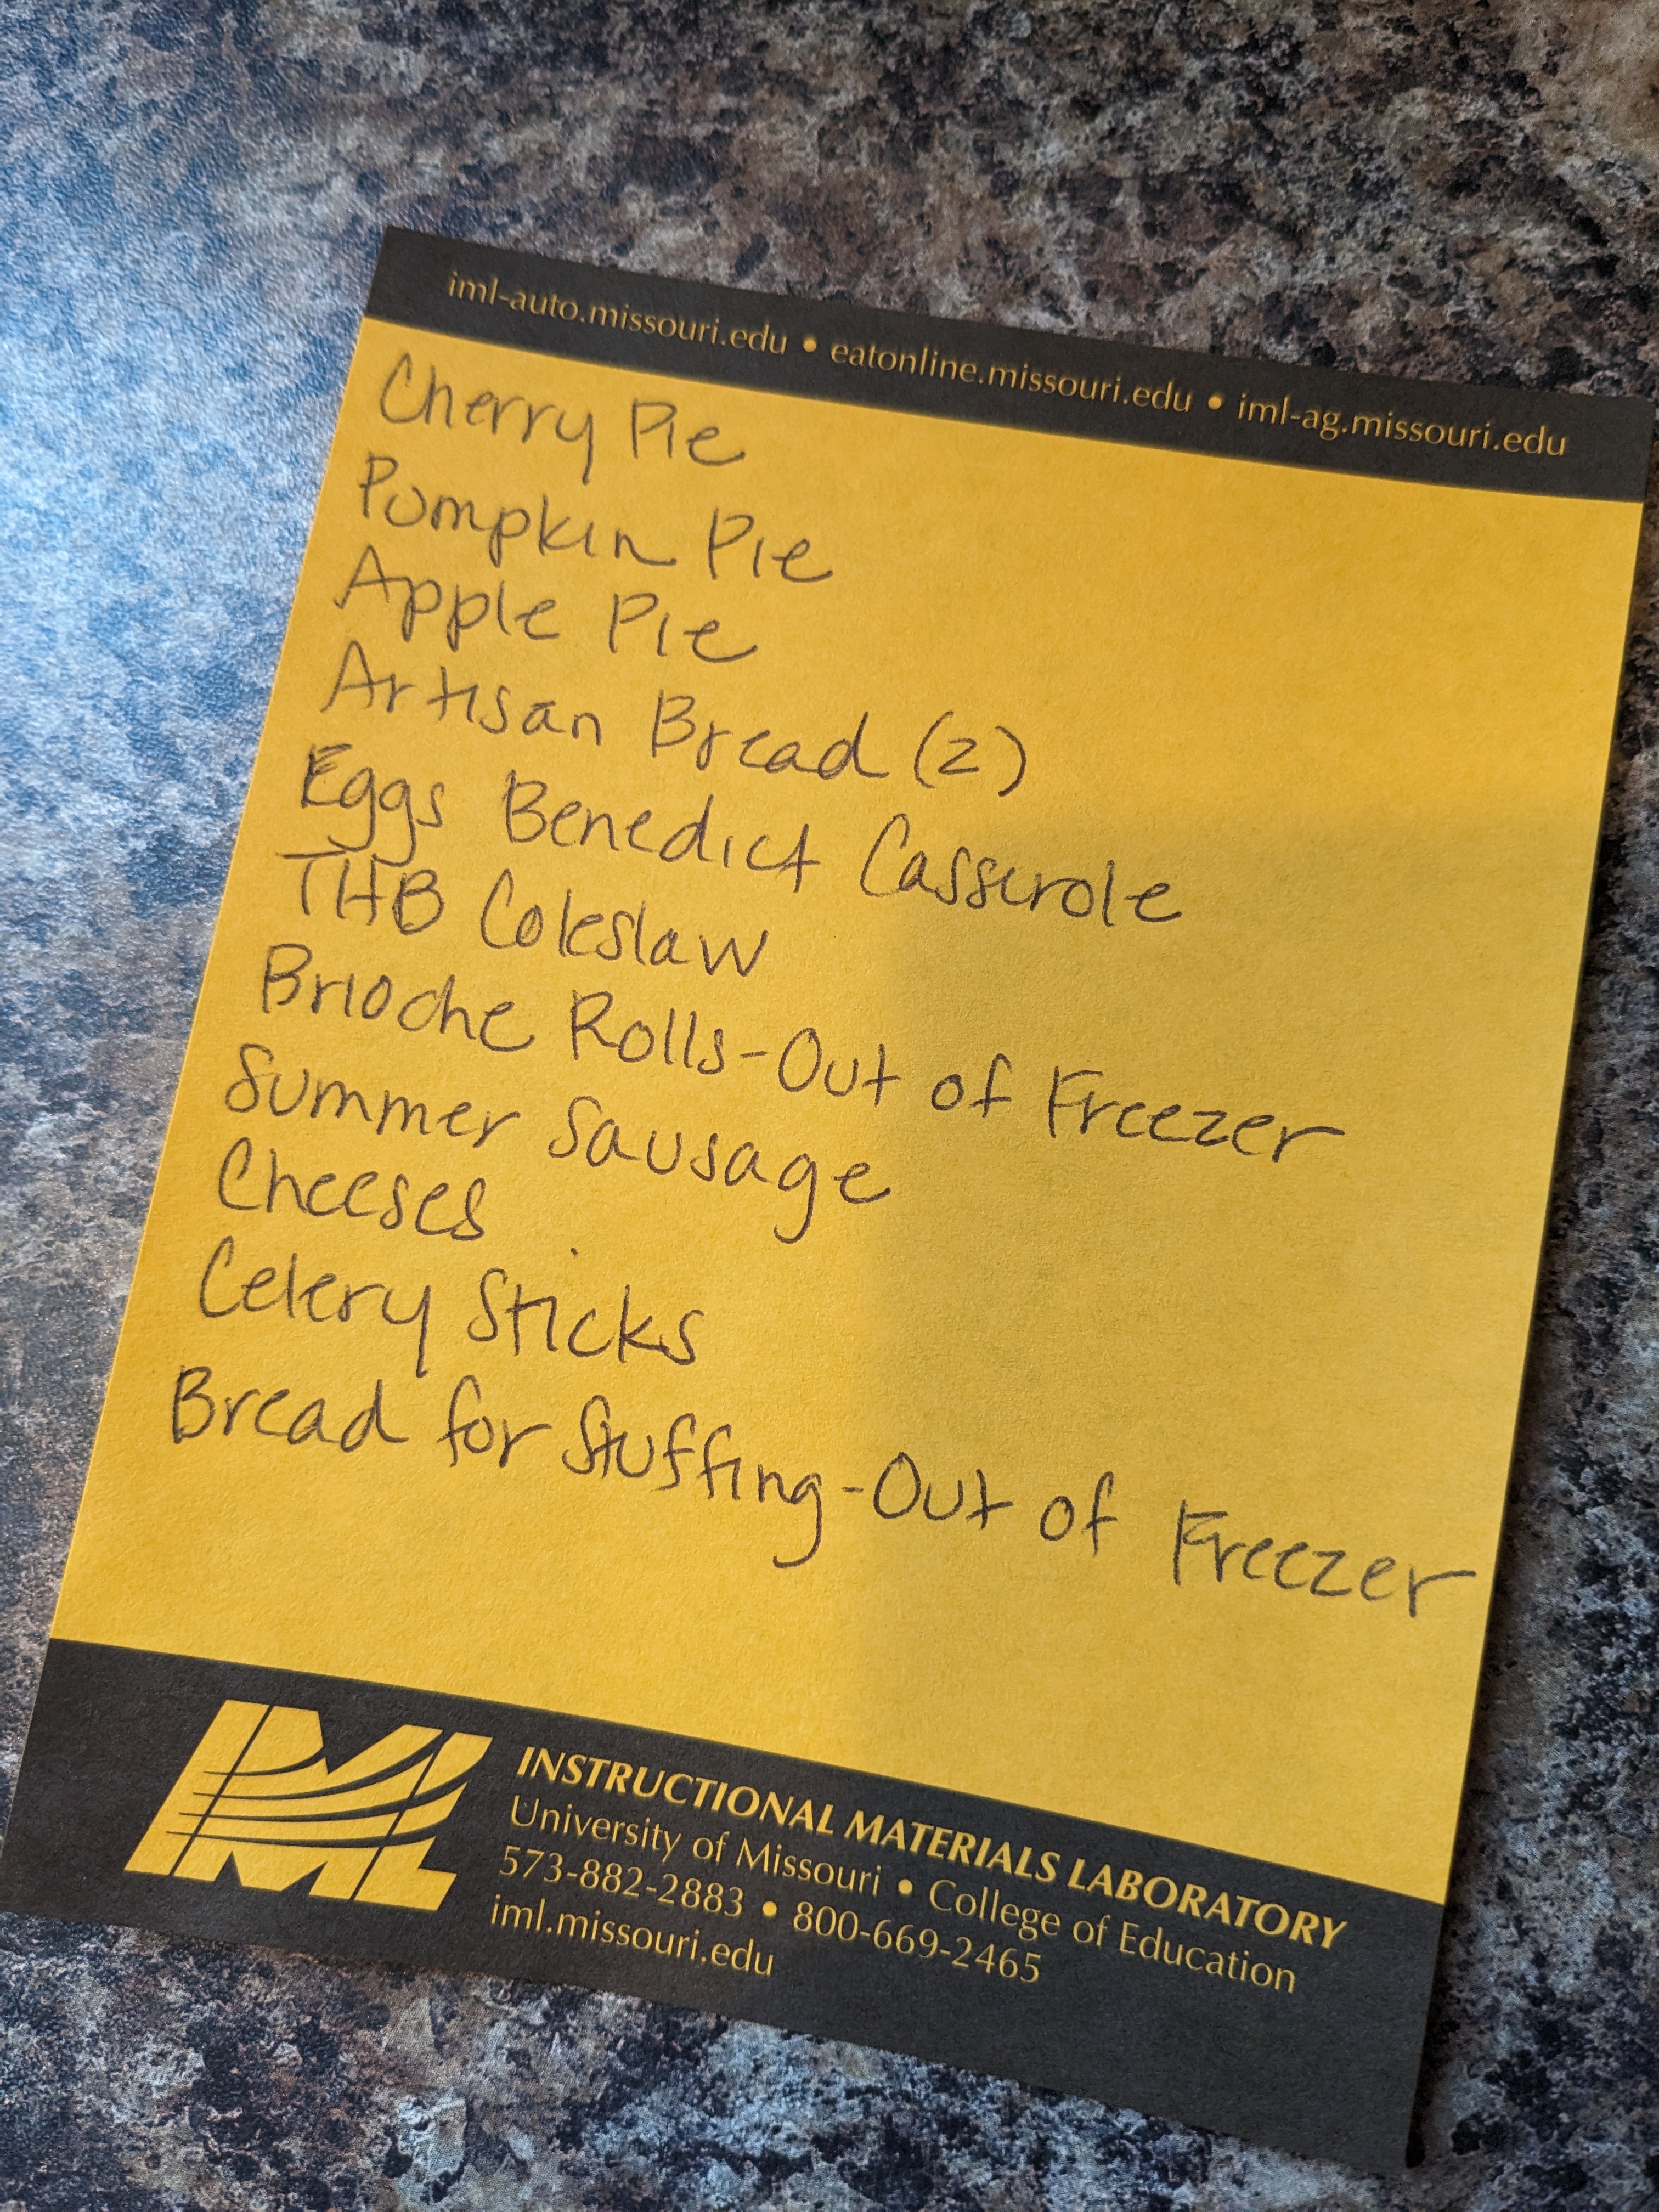 iml-auto.missouri.edu • eatonline.missouri.edu • iml-ag.missouri.edu
Cherry Pie
Pumpkin Pie
Apple Pie
Artisan Bread (2)
Eggs Benedict Casserole
THB Coleslaw
Brioche Rolls-Out of Freezer
Summer Sausage
Cheeses
Celery Sticks
Bread for Stuffing-Out of Freezer
IML
INSTRUCTIONAL MATERIALS LABORATORY
University of Missouri • College of Education
573-882-2883 • 800-669-2465
iml.missouri.edu